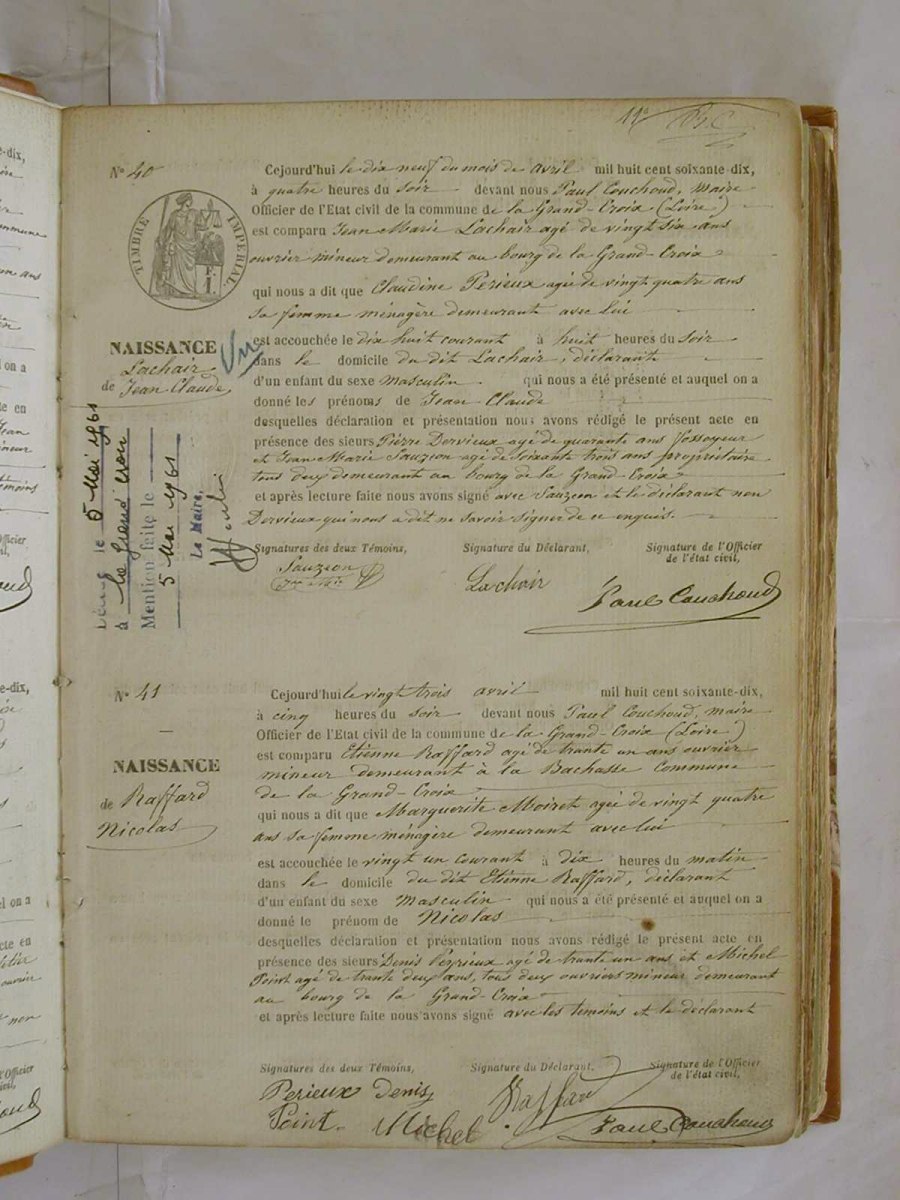 11e
N° 40
TIMBRE IMPÉRIAL
NAISSANCE
Lachair
de Jean Claude
Vu
le 5 Mai 1961
à la Grand'Croix
Mention faite le
5 Mai 1961
Le Maire,
Cejourd'hui le dix neuf du mois de avril mil huit cent soixante-dix,
à quatre heures du soir devant nous Paul Couchoud, maire
Officier de l'Etat civil de la commune de la Grand-Croix (Loire)
est comparu Jean Marie Lachair agé de vingt six ans
ouvrier mineur demeurant au bourg de la Grand-Croix
qui nous a dit que Claudine Perieux agée de vingt quatre ans
sa femme ménagère demeurante avec lui
est accouchée le dix huit courant à huit heures du soir
dans le domicile du dit Lachair, déclarant
d'un enfant du sexe masculin. qui nous a été présenté et auquel on a
donné les prénoms de Jean Claude
desquelles déclaration et présentation nous avons rédigé le présent acte en
présence des sieurs Pierre Dervieux agé de quarante ans fossoyeur
et Jean Marie Sauzion agé de soixante trois ans propriétaire
tous deux demeurant au bourg de la Grand-Croix
et après lecture faite nous avons signé avec Sauzion et le déclarant non
Dervieux qui nous a dit ne savoir signer de ce enquis.
Signatures des deux Témoins, Signature du Déclarant, Signature de l'Officier
de l'état civil,
Sauzion
Lachair
Paul Couchoud
N° 41
NAISSANCE
de Raffard
Nicolas
Cejourd'hui le vingt trois avril mil huit cent soixante-dix,
à cinq heures du soir devant nous Paul Couchoud, maire
Officier de l'Etat civil de la commune de la Grand-Croix (Loire)
est comparu Etienne Raffard agé de trante un ans ouvrier
mineur demeurant à la Bachasse Commune
de la Grand-Croix
qui nous a dit que Marguerite Moiret agée de vingt quatre
ans sa femme ménagère demeurant avec lui
est accouchée le vingt un courant à dix heures du matin
dans le domicile du dit Etienne Raffard, déclarant
d'un enfant du sexe masculin qui nous a été présenté et auquel on a
donné le prénom de Nicolas
desquelles déclaration et présentation nous avons rédigé le présent acte en
présence des sieurs Denis Perrieux agé de trante un ans, et Michel
Point agé de trante deux ans, tous deux ouvriers mineur demeurant
au bourg de la Grand-Croix
et après lecture faite nous avons signé avec les temoins et le déclarant
Signatures des deux Témoins, Signature du Déclarant, Signature de l'Officier
de l'état civil,
Perieux Denis
Raffard
Point Michel
Paul Couchoud